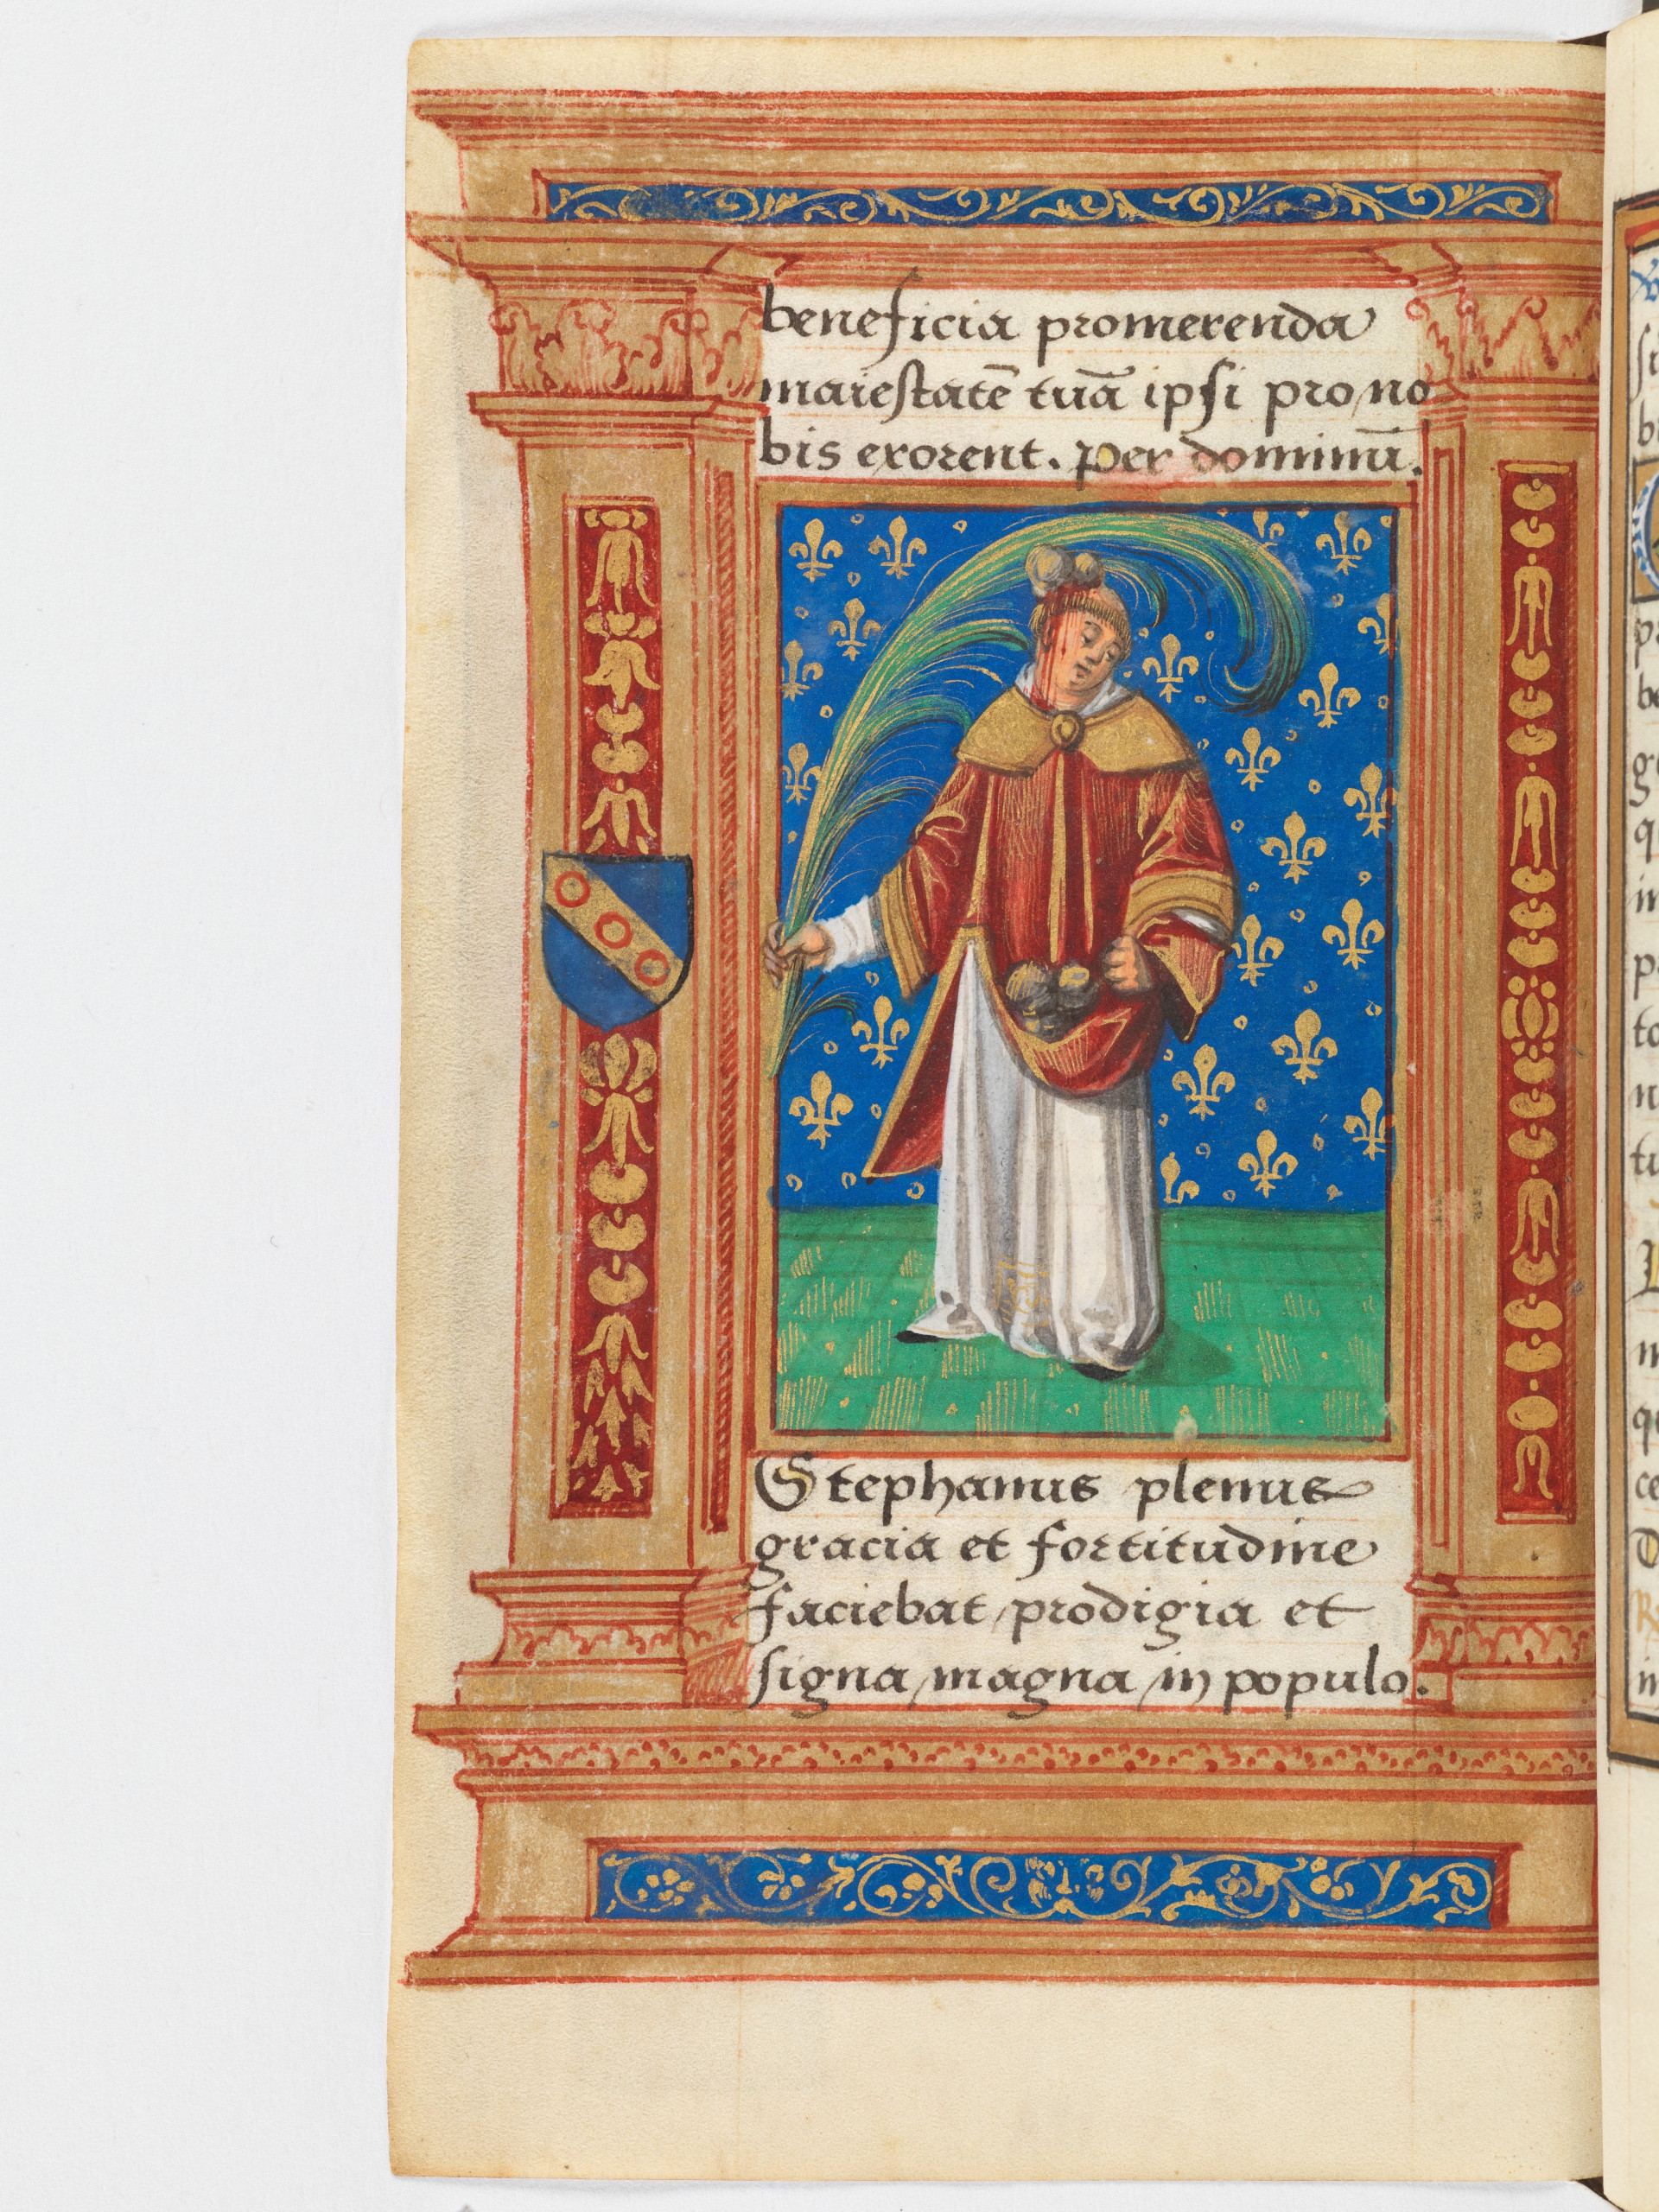 beneficia promerenda
maiestatē tuā ipsi pro no
bis exorent. per dominū.
Stephanus plenus
gracia et fortitudine
faciebat prodigia et
signa magna in populo.